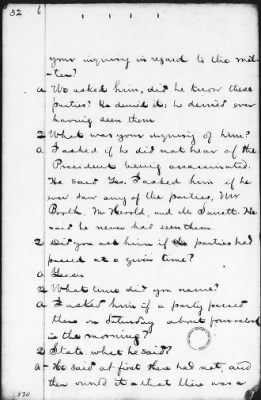 32 6
your inquiry in regard to the mat-
ter?
A We asked him, did he know these
parties? He denied it; he denied ever
having seen them
Q What was your inquiry of him?
A I asked if he did not hear of the
President being assassinated.
He said Yes. I asked him if he
ever saw any of the parties, Mr
Booth, Mr Herold, and Mr Surratt. He
said he never had seen them.
Q Did you ask him if the parties had
passed at a given time?
A Yes sir
Q What time did you name?
A I asked him if a party passed
there on Saturday about four o'clock
in the morning?
Q State what he said?
A He said at first there had not, and
then owned it that there was a